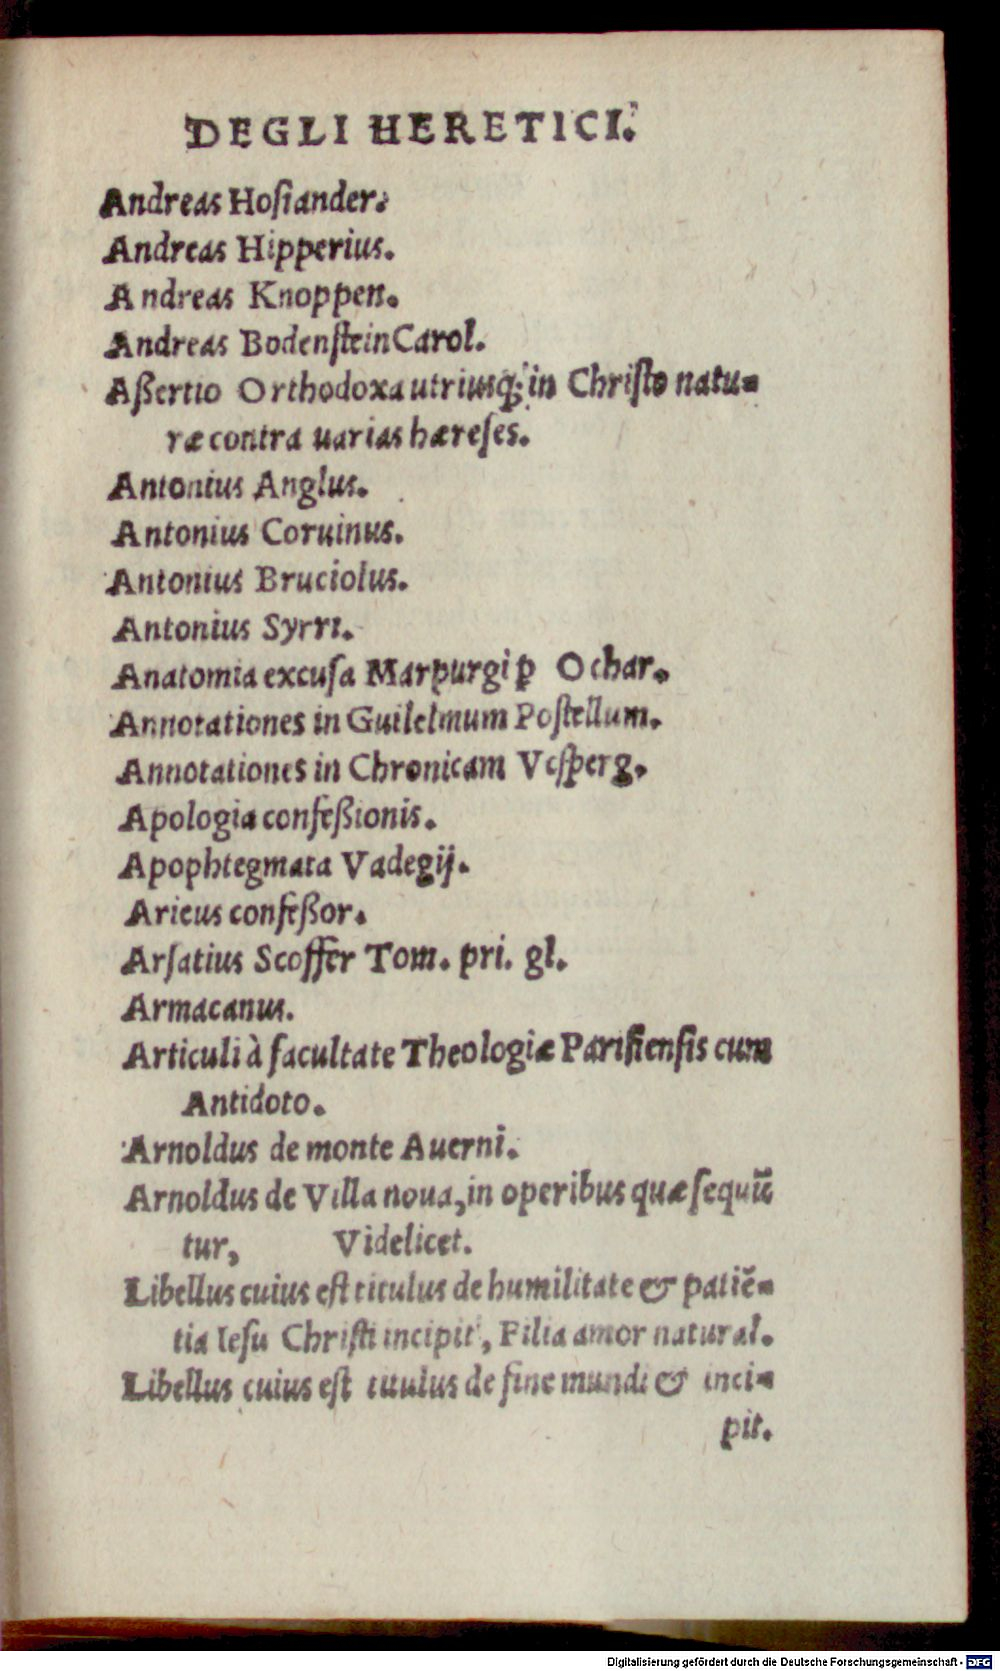 DEGLI HERETICI.
Andreas Hosiander.
Andreas Hipperius.
Andreas Knoppen.
Andreas BodensteinCarol.
Aßertio Orthodoxa utriusq; in Christo natu-
ræ contra uarias hæreses.
Antonius Anglus.
Antonius Coruinus.
Antonius Bruciolus.
Antonius Syrri.
Anatomia excusa Marpurgi ꝑ Ochar.
Annotationes in Guilelmum Postellum.
Annotationes in Chronicam Vesperg.
Apologia confeßionis.
Apophtegmata Vadegij.
Aricus confeßor.
Arsatius Scoffer Tom. pri. gl.
Armacanus.
Articuli à facultate Theologiæ Parisiensis cum
Antidoto.
Arnoldus de monte Auerni.
Arnoldus de Villa noua, in operibus quæ sequū
tur, Videlicet.
Libellus cuius est titulus de humilitate & patiē-
tia Iesu Christi incipit, Filia amor natural.
Libellus cuius est titulus de fine mundi & inci-
pit.
Digitalisierung gefördert durch die Deutsche Forschungsgemeinschaft - DFG